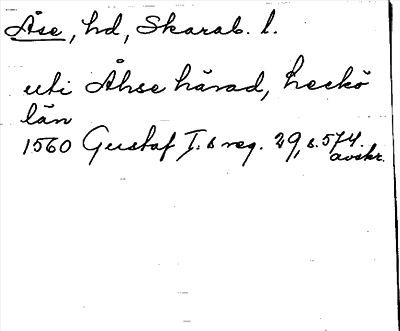 Åse, hd, Skarab. l.
uti Åhse härad, Leckö
län
1560 Gustaf I.s reg. 29, s. 574.
avskr.